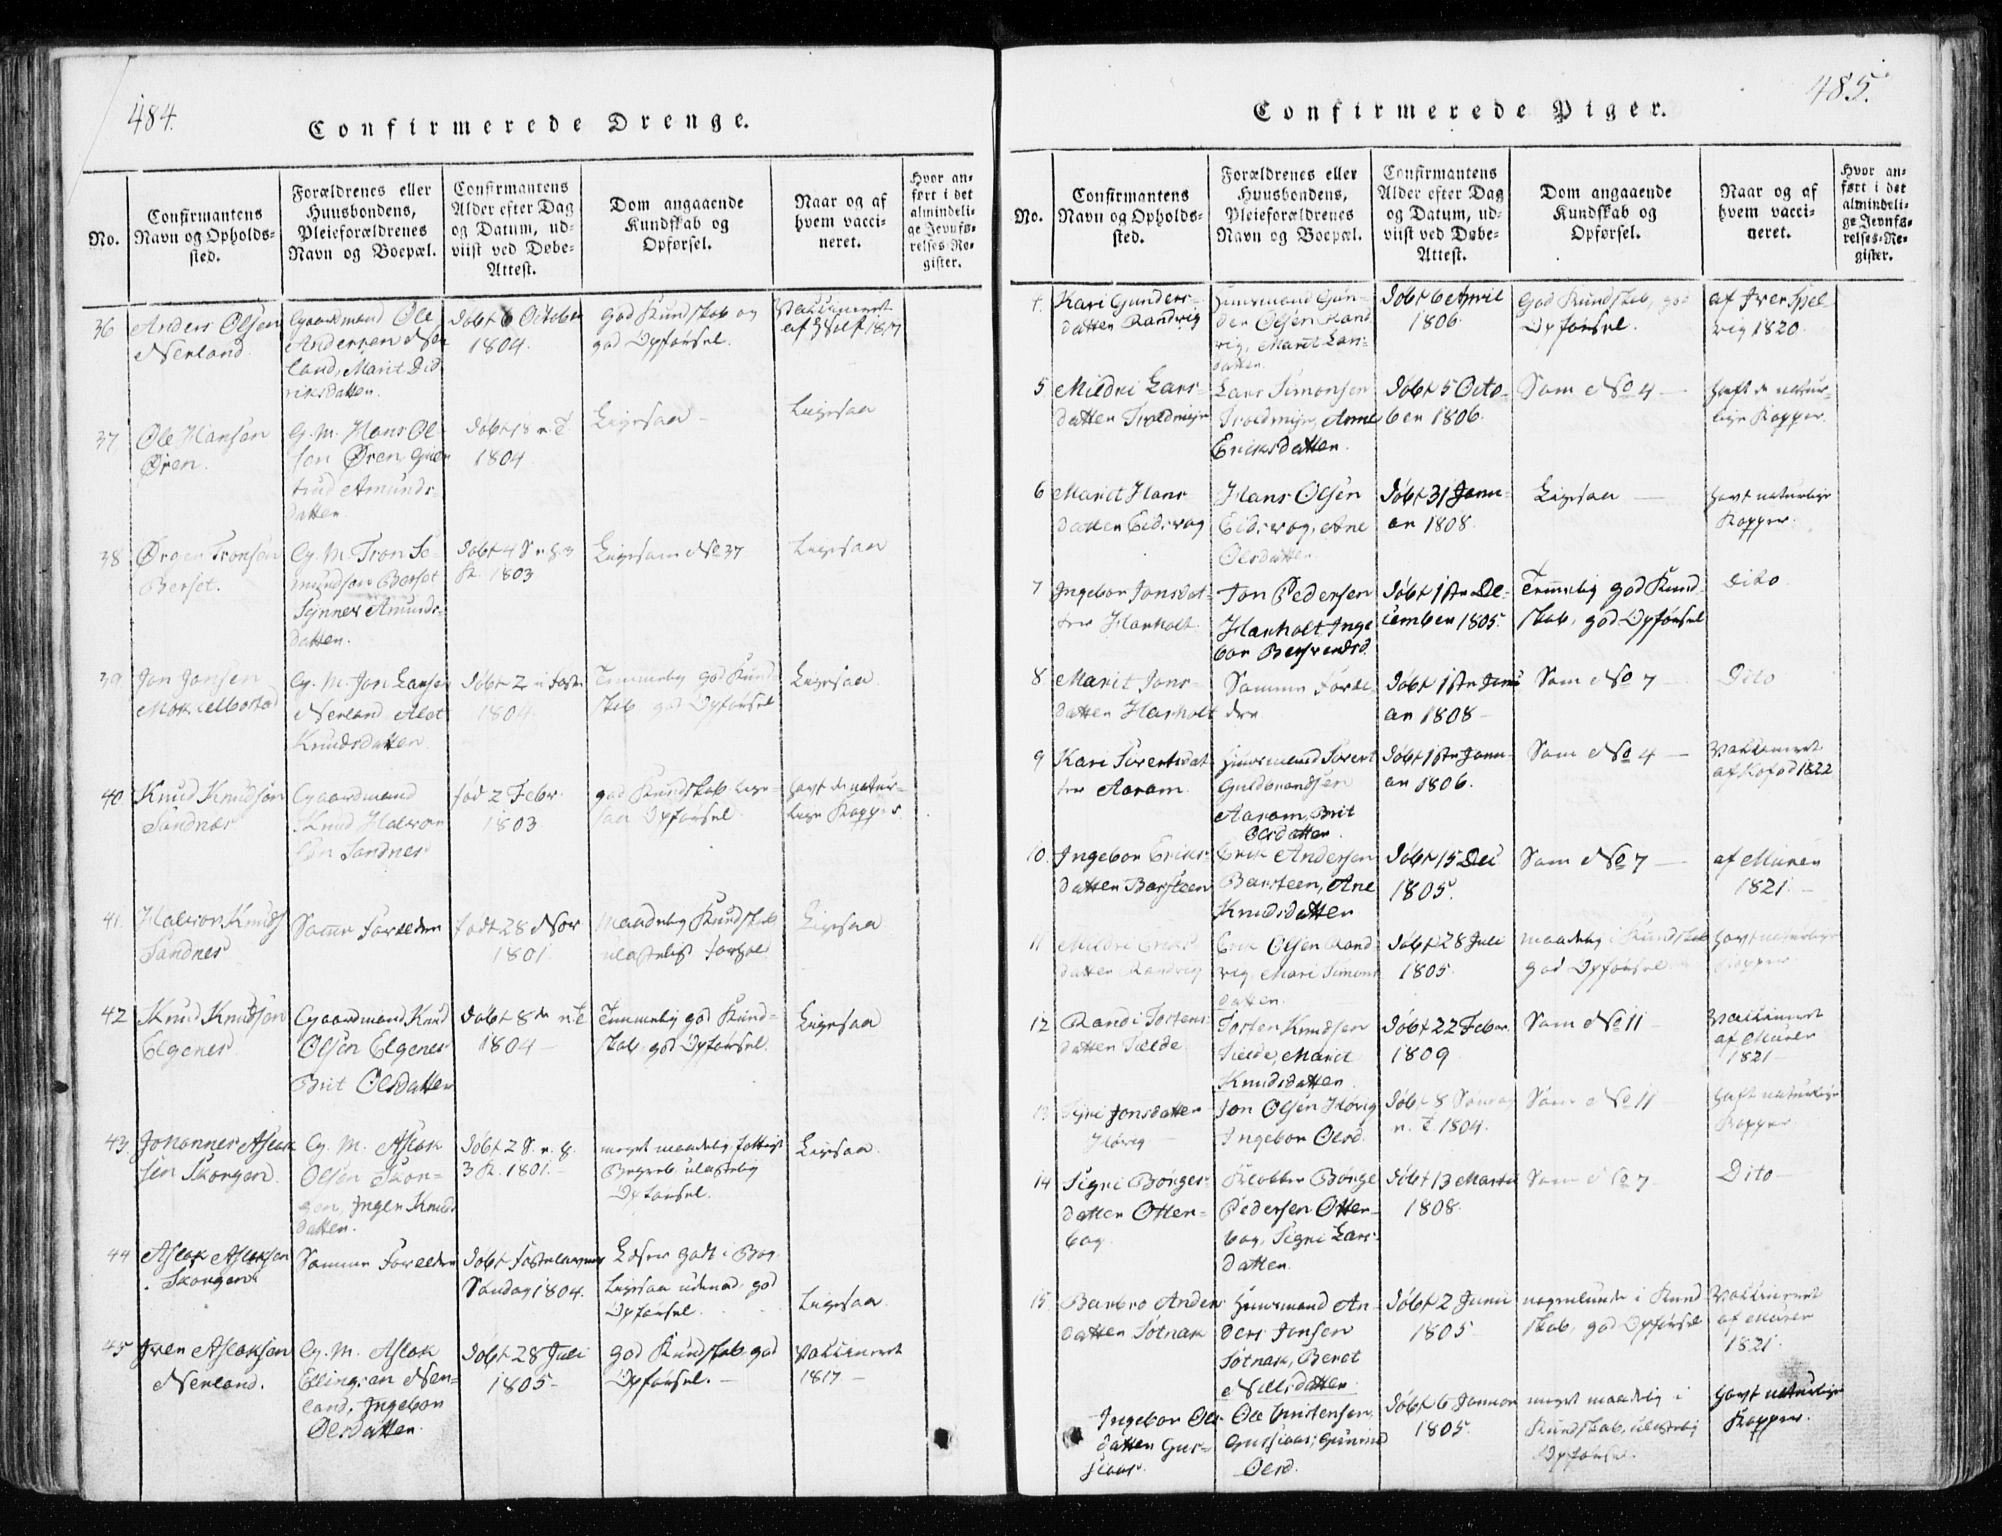 484.
Confirmerede Drenge.
No.
Confirmantens
Navn og Opholds-
sted.
Forældrenes eller
Huusbondens,
Pleieforældrenes
Navn og Boepæl.
Confirmantens
Alder efter Dag
og Datum, ud-
viist ved Døbe-
Attest.
Dom angaaende
Kundskab og
Opførsel.
Naar og af
hvem vacci-
neret.
Hvor an-
ført i det
almindeli-
ge Jevnfø-
relses-Re-
gister.
36
Anders Olsen
Nerland.
Gaardmand Ole
Andersen Ner
land, Marit Did
riksdatten.
Døbt 6 October
1804.
god Kundskab og
god Opførsel.
Vakkineret
af 1817
37
Ole Hansen
Øren.
G. M. Hans Ol
sen Øren Guer
trud Amunds-
datten
Døbt 18 n. T.
1804.
Ligesaa
Ligesaa
38
Ørgen Tronsøn
Berset.
G. M. Tron Se
mundsøn Berset
Synnev Amunds-
datten.
Døbt 4 S. n. h. 3
K. 1803
Ligesom No 37
Ligesaa
39
Jon Jonsen
G. M. Jon Larsen
Nerland
Knudsdatten
Døbt 2 i Faste
1804.
Temmelig god Kund
skab god Opførsel
Ligesaa
40
Knud Knudsøn
Sandnes
Gaardmand
Knud Halvor
søn Sandnes
fød 2 Febr.
1803
god Kundskab lige-
saa Opførsel.
havt de natur-
lige Kopper
41.
Halvor Knuds
Sandnes
Samme Forældre
født 28 Nov
1801
Maadelig Kundskab
ulastelig Forhold
Ligesaa
42
Knud Knudsøn
Elgenes
Gaardmand Knud
Olsen Elgenes
Brit Olsdatten
Døbt 8de n. T.
1804
Temmelig god Kund-
skab god Opførsel.
Ligesaa
43.
Johannes Aslak
sen Skorgen
G. M. Aslak
Olsen Skor-
gen, Inger Knuds
datten.
Døbt 2 S. n. h.
3 K. 1801.
meget maadelig fattigt
Begreb ulastelig
Opførsel.
Ligesaa.
44
Aslak Aslaksen
Skorgen
Samme Forældre
Døbt Fastelavns
Søndag 1804.
Læser godt i Bog
Ligesaa udenad god
Opførsel.
Ligesaa
45
Iver Aslaksen
Nerland.
G. M. Aslak
Ellingsen Ner-
land, Ingebor
Olsdatten.
Døbt 28 Juli
1805
God Kundskab god
Opførsel.
Vakkineret
1817
485.
Confirmerede Piger.
No.
Confirmantens
Navn og Opholds-
sted.
Forældrenes eller
Huusbondens,
Pleieforældrenes
Navn og Boepæl.
Confirmantens
Alder efter Dag
og Datum, ud-
viist ved Døbe-
Attest.
Dom angaaende
Kundskab og
Opførsel.
Naar og af
hvem vacci-
neret.
Hvor an-
ført i det
almindeli-
ge Jevnfø-
relses-Re-
gister.
4.
Kari Gunders-
datten Randvig
Huusmand Gun-
der Olsen Rand
vig, Marit Lars-
datten.
Døbt 6 April
1806.
God Kundskab, god
Opførsel.
af Iver Spel
vig 1820.
5
Mildri Lars-
datten Troldmyr
Lars Simonsen
Troldmyr, Anne
Ericksdatten.
Døbt 5 Octo-
ber 1806.
Som No 4
haft de natur-
lige Kopper.
6
Marit Hans-
datten Eidsvog
Hans Olsen
Eidsvog, Ane
Olsdatten
Døbt 31 Janu-
ar 1808.
Ligesaa
havt naturlige
Kopper.
7
Ingebor Jonsdat-
ter Harholt
Jon Pedersen
Harholt Inge
bor
Døbt 1ste De-
cember 1805.
Temmelig god Kund-
skab, god Opførsel
Dito
8
Marit Jons-
datten Harholt
Samme Foræl-
dre
Døbt 1ste Janu
ar 1808
Som No 7
Dito
9
Kari Sivertsdat
ter Aaram
Huusmand Sivert
Guldbrandsen
Aaram, Brit
Olsdatten
Døbt 1ste Janu-
ar 1806.
Som No 4
Vakkineret
af Kofod 1822
10.
Ingebor Eriks-
datten Barsteen
Erik Andersen
Barsteen, Ane
Knudsdatten
Døbt 15 Dec
1805.
Som No 7
af Murer
1821.
11
Mildri Eriks
datten Randvig
Erik Olsen Rand-
vig, Mari Simons
datten.
Døbt 28 Juli
1805.
maadelig i Kundskab
god Opførsel
havt naturlige
Kopper
12
Randi Tostens-
datten Tielde
Tosten Knudsen
Tielde, Marit
Knudsdatten
Døbt 22 Febr.
1809
Som No 11
Vakkineret
af Murer
1821
13
Jonsdatten
Høvig
Jon Olsen Høvig
Ingebor Olsd.
Døbt 8 Søndag
n. T. 1804.
Som No 11
haft naturlige
Kopper
14
Signi Børges-
datten Otter-
bog
Klokker Børge
Pedersen Otter-
bog, Signi Lars-
datten.
Døbt 13 Marts
1808.
Som No 7
Dito
15.
Barbro Anders
datten Sotnak
Huusmand An-
ders Jonsen
Sotnak, Beret
Nillsdatten
Døbt 2 Junii
1805
nogenlunde i Kund
skab, god Opførsel
Vakkineret
af Murer
1821.
Ingebor Ols
datten Gus-
siaas.
Ole Christensen
Gussiaas, Gunnild
Olsd.
Døbt 6 Januar
1805.
meget maadelig i
Kundskab, ulastelig
Opførsel.
havt naturlige
Kopper.